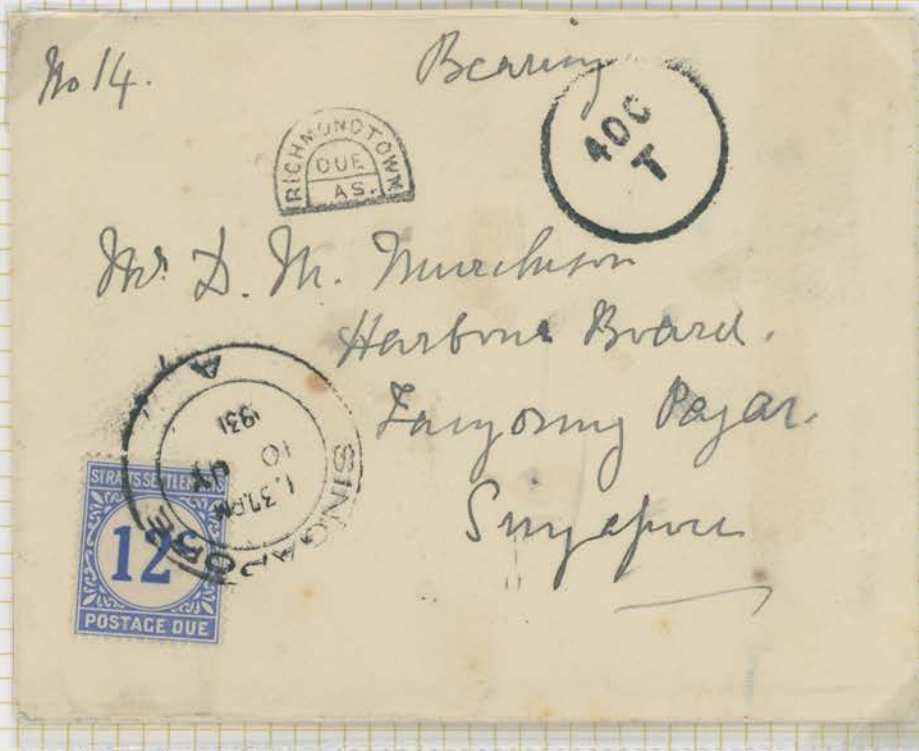 No 14.
Bearing
40 C
T
RICHMONDTOWN
DUE
AS.
Mr D. M. Murchison
Harbour Board.
Tanyong Pagar.
Singapore
SINGAPORE
A
1.37PM
10
1931
STRAITS SETTLEMENTS
12c
POSTAGE DUE